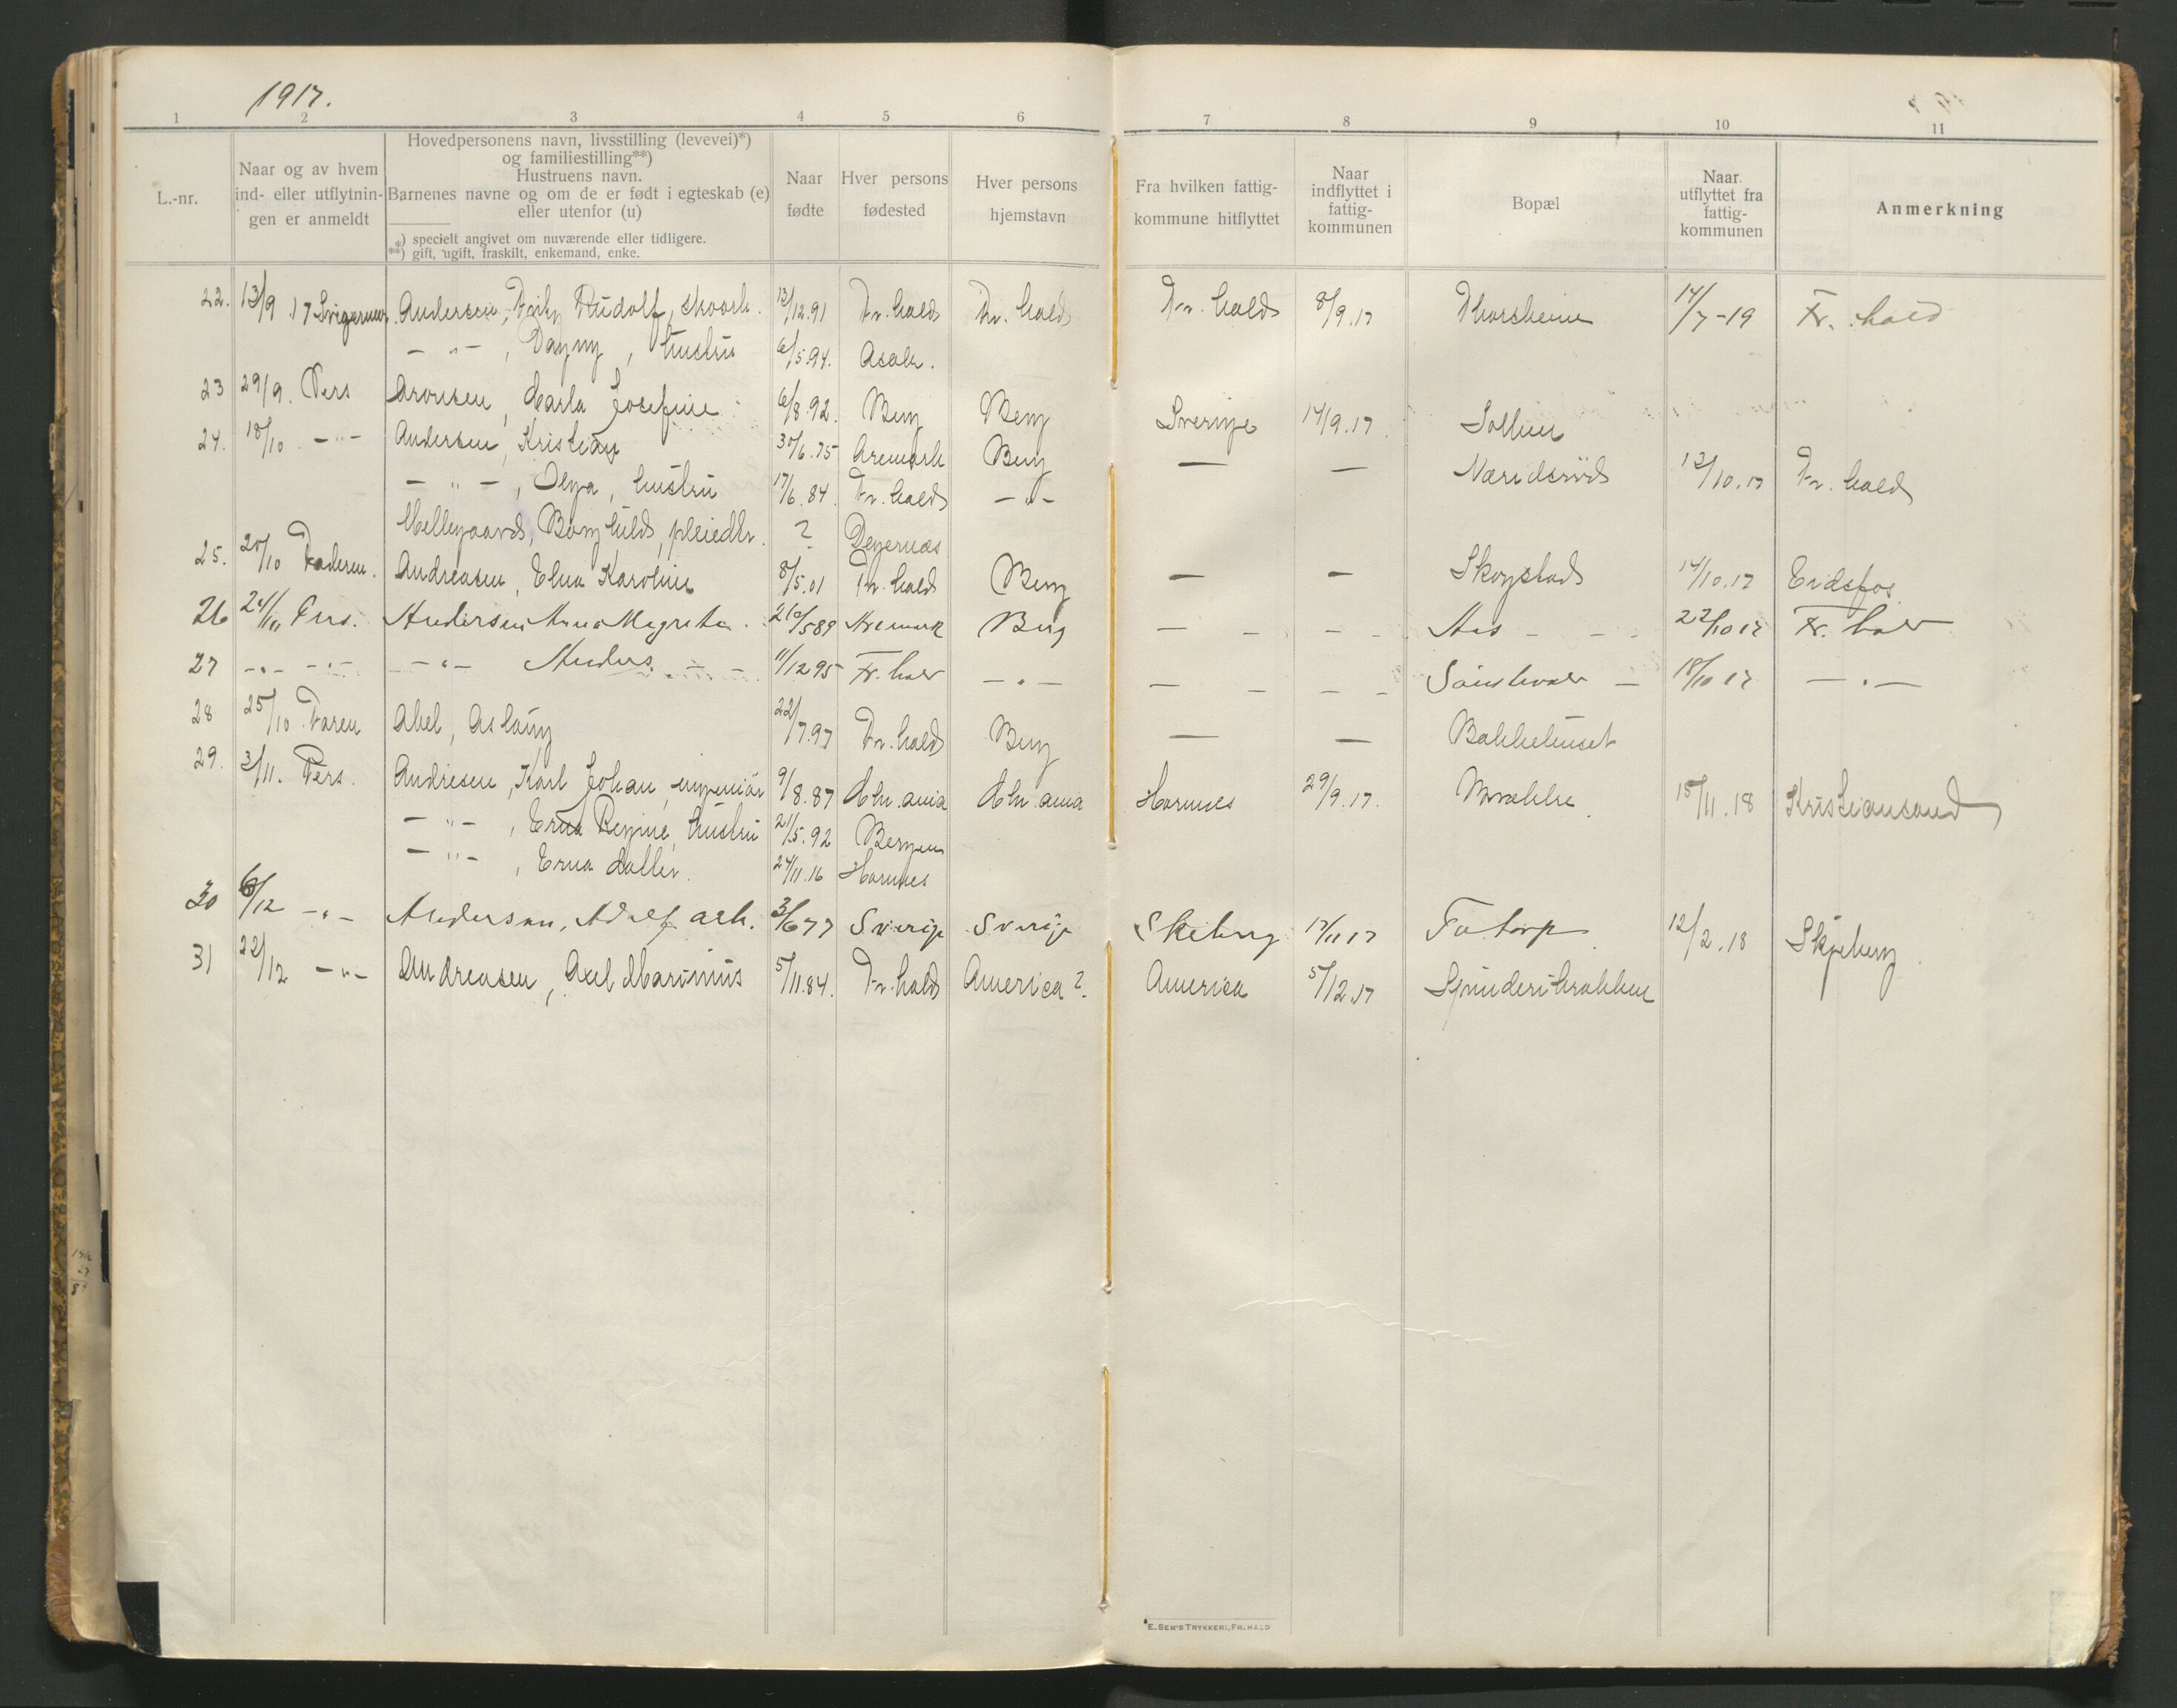 1917.
1 2 3 4 5 6 7 8 9 10 11
L.-nr.
Naar og av hvem
ind- eller utflytnin-
gen er anmeldt
Hovedpersonens navn, livsstilling (levevei)*)
og familiestilling**)
Hustruens navn.
Barnenes navne og om de er født i egteskab (e)
eller utenfor (u)
*) specielt angivet om nuværende eller tidligere.
**) gift, ugift, fraskilt, enkemand, enke.
Naar
fødte
Hver persons
fødested
Hver persons
hjemstavn
Fra hvilken fattig-
kommune hitflyttet
Naar
indflyttet i
fattig-
kommunen
Bopæl
Naar
utflyttet fra
fattig-
kommunen
Anmerkning
22. 13/9 .17 Andersen, Rudolf, skoarb. 13/12.91 Fr. hald Fr. hald Fr. hald 8/9.17 Thorsheim 14/7-19 Fr. hald
— " — , Dagny, hustru 6/5.94. Asak.
23 29/9. Pers Aronsen, Marla Josefine 6/8.92. Berg Berg Sverige 14/9.17. Sollie
24. 18/10. — " — Andersen, Kristian 30/6.75 Aremark Berg — — 12/10.17 Fr. hald
— " — , Olga, hustru 17/6.84. Fr. hald — " —
Borghild, pleiedtr. ? Degernes
25. 20/10 Faderen. Andreasen, Elna Karoline 8/5.01 Fr. hald Berg — — Skogstad 14/10.17 Eidsfos
26 24/11 Pers. Andersen Anna Magreta 5 89 Aremark Berg — — — — Aas — — 22/10 17 Fr. hald
27 — " — — " — — " — Anders. — — 11/12 95 Fr. hald — " — — — — — — 18/10 17 — " —
28 25/10 Faren Abel, Aslaug 22/7.97 Fr. hald Berg — — Bakkehuset
29. 3/11. Pers. Andresen, Karl Johan, ingeniør 9/8.87 Chr.ania Chr.ania Hornnes 29/9.17. 15/11.18 Kristiansand
— " — , Erna Regine, hustru 21/5.92 Bergen
— " — , Erna 24/11.16 Hornnes
30 6/12 — " — Anderson, Adolf arb. 3/6 77 Sverige Sverige Skeberg 17/11 17 Fatorp 12/2.18 Skjeberg.
31 22/12 — " — Andreasen, Axel Marinius 5/11.84. Fr. hald America ?. America 5/12.17
E. SEM'S TRYKKERI, FR.HALD